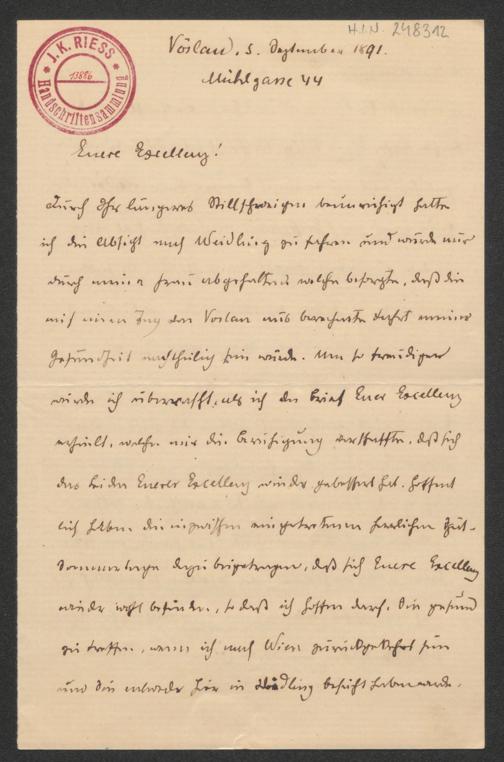 H.I.N. 248312
J. K. RIESS
13886
Handschriftensammlung
Vöslau, 5. September 1891.
Mühlgasse 44
Euere Excellenz!
Durch Ihr längeres Stillschweigen beunruhigt hatte
ich die Absicht nach Weidling zu fahren und wurde nur
durch meine Frau abgehalten welche besorgte, daß die
auf einen Tag von Vöslau aus berechnete Fahrt meiner
Gesundheit nachtheilig sein würde. Um so freudiger
wurde ich überrascht, als ich den Brief Euer Excellenz
erhielt, welcher mir die Beruhigung verschaffte, daß sich
das Leiden Euerer Excellenz wieder gebessert hat. Hoffent
lich haben die inzwischen eingetretenen herrlichen Spät-
sommertage dazu beigetragen, daß sich Euere Excellenz
wieder wohl befinden, so daß ich hoffen darf, Sie gesund
zu treffen, wenn ich nach Wien zurückgekehrt sein
und Sie entweder hier in Weidling besucht haben werde.